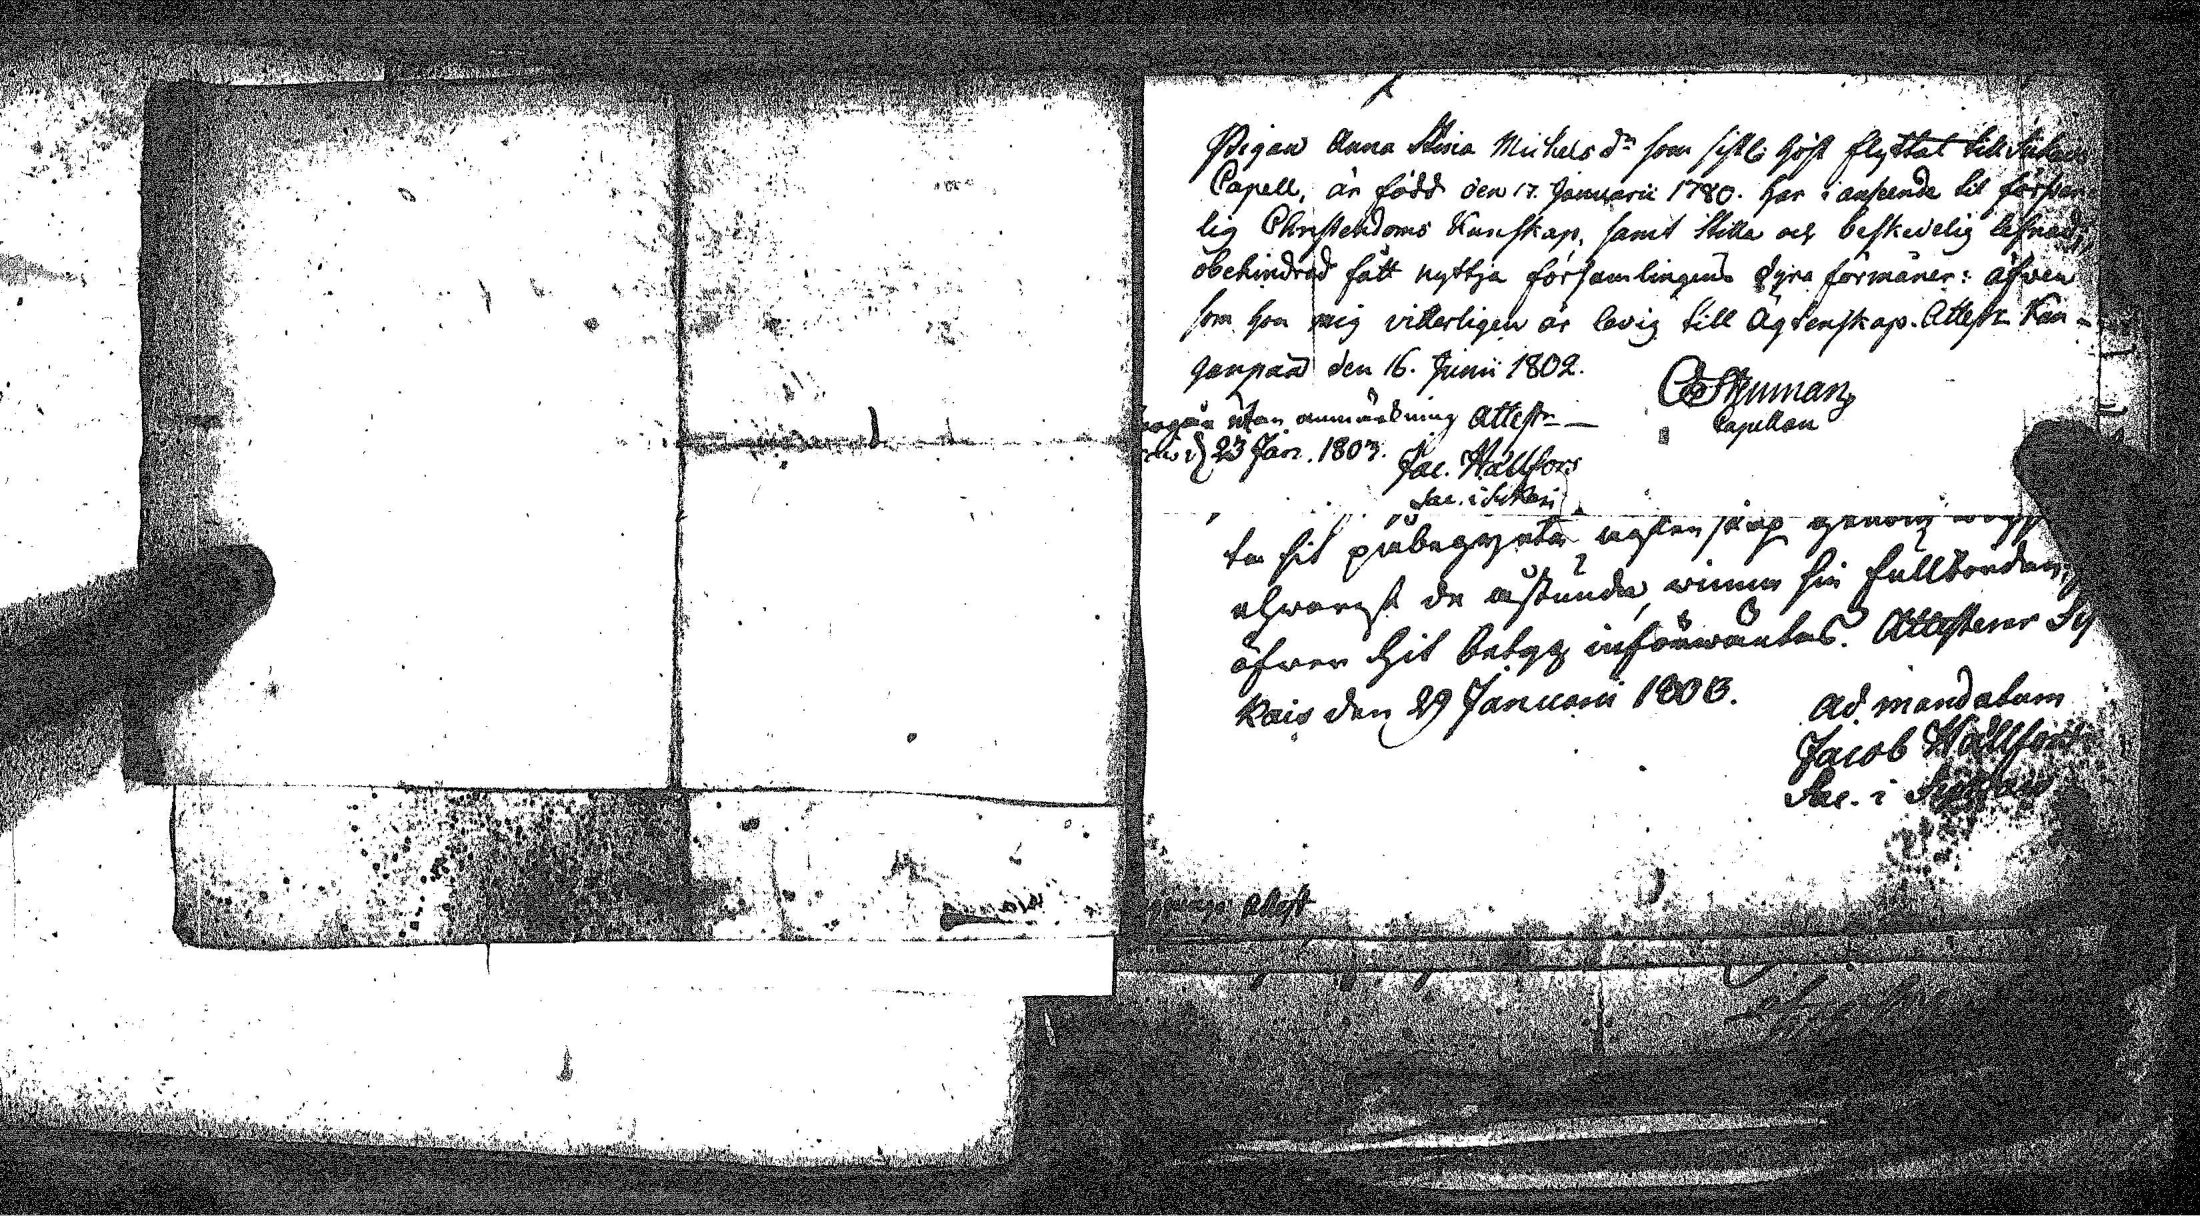 Pigan Anna Stina Michels dr som sistl: höst flyttat till
Capell, är född den 17. Januarii 1780. har i anseende til försvar
lig Christendoms Kunskap, samt stilla och beskedelig lefnad,
obehindrad fått nyttja församlingens dyra förmåner: äfwen
som hon mig vitterligen är lovig till Ägtenskap. Attestr Kan-
ganpää den 16. Junii 1802.
Stenman
Capellan
utan anmärkning Attestr
d 23 Jan. 1803.
Jac. Wallfors
Sac. i
ta sit påbegynta genom
de åstunda, winna sin fullbordan,
öfwer hit betyg införwäntas. Attesterar Sy
kais den 29 Januarii 1803.
Ad mandatum
Jacob Wallfors
Sac. i
Attest